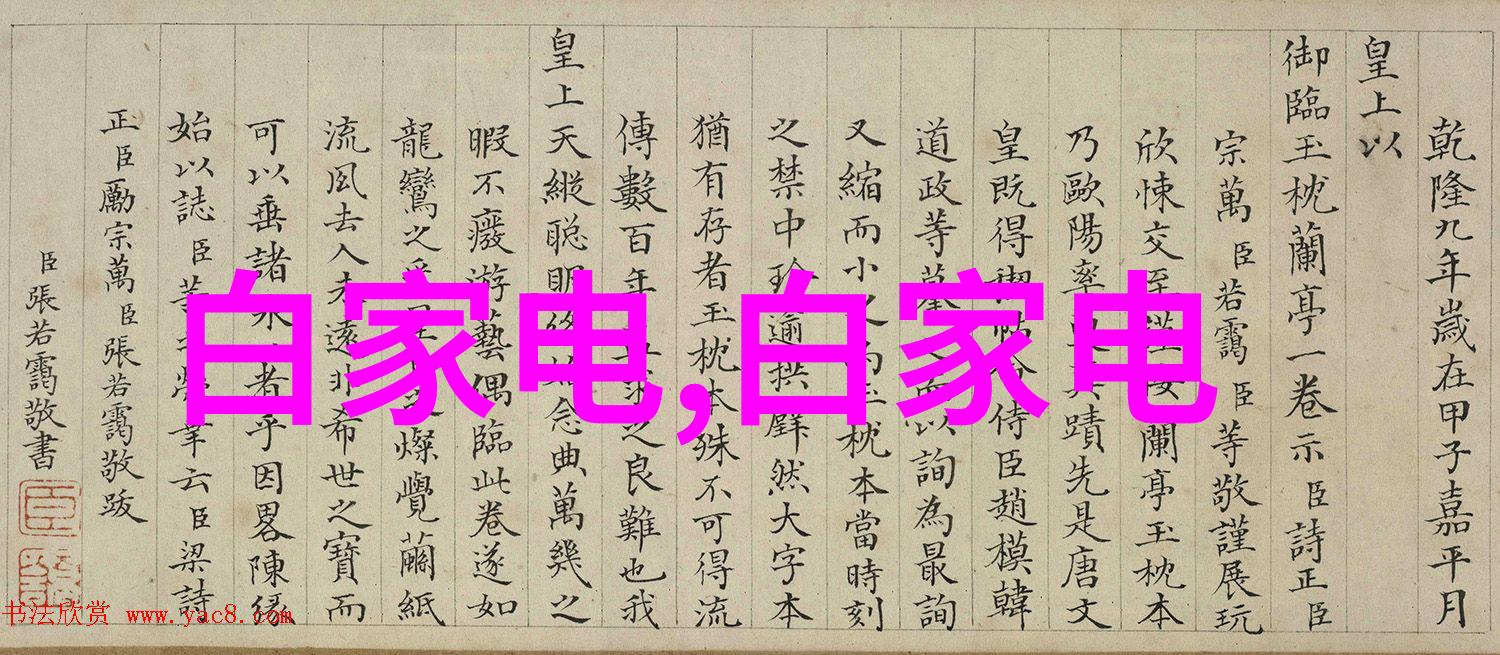 乾隆九年歲在甲子嘉平月
皇上以
御臨玉枕蘭亭一卷示臣詩正臣
宗萬臣若靄臣等敬謹展玩
欣悚交至蘭亭玉枕本
乃歐陽率更真蹟先是唐文
皇既得禊帖命侍臣趙模韓
道政等摹而以詢為最詢
又縮而小之玉枕本當時刻
之禁中珍逾拱璧然大字本
猶有存者玉枕本殊不可得流
傳數百年求之良難也我
皇上天縱聰明終始念典萬幾之
暇不廢游藝偶臨此卷遂如
龍鸞之燦覺繭紙
流風去人未遠非希世之寶而
可以垂諸永者乎因畧陳緣
始以誌臣等榮幸云臣梁詩
正臣勵宗萬臣張若靄敬跋
臣張若靄敬書
白家电,白家电
书法欣赏 www.yac8.com